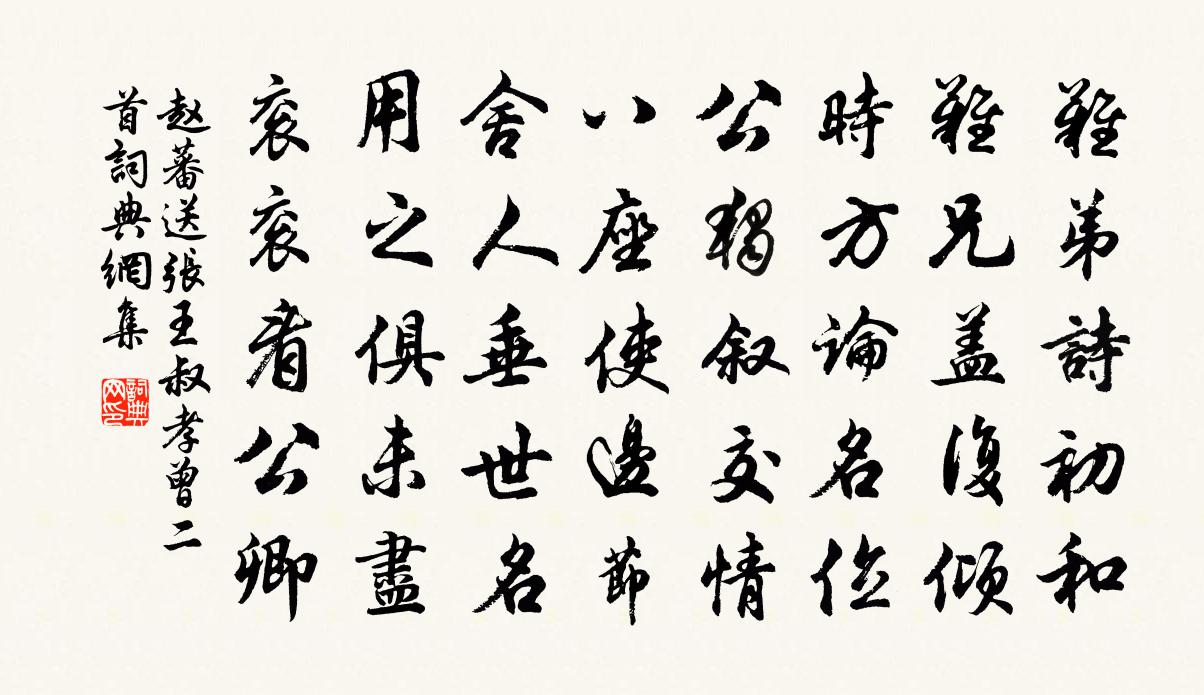 難弟詩初和
難兄盖復傾
時方論名位
公獨叙交情
八座使邊節
舍人垂世名
用之俱未盡
衮衮看公卿
赵蕃送張王叔孝曾二
首詞典網集
詞典
网印